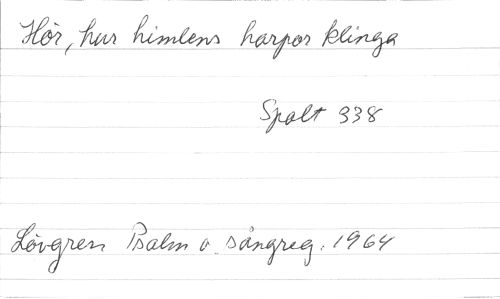 Hör, hur himlens harpor klinga
Spalt 338
Lövgren Psalm o. sångreg. 1964